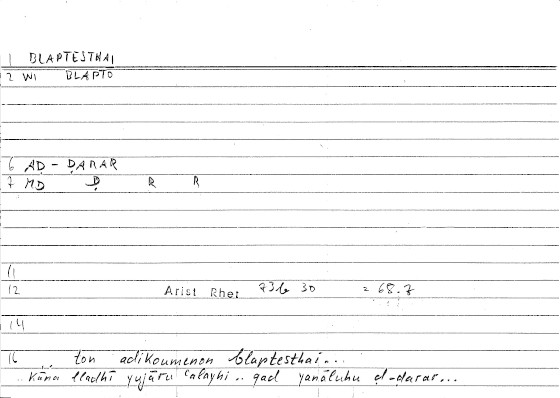 1 BLAPTESTHAI
2 WI BLAPTŌ
6 AḌ - ḌARAR
7 MD Ḍ R R
11
12 Arist Rhet 73b 30 = 68.7
14
16 ... ton adikoumenon blaptesthai...
.. kāna lladhī yujāru ʿalayhi .. qad yanāluhu ḍ-ḍarar...